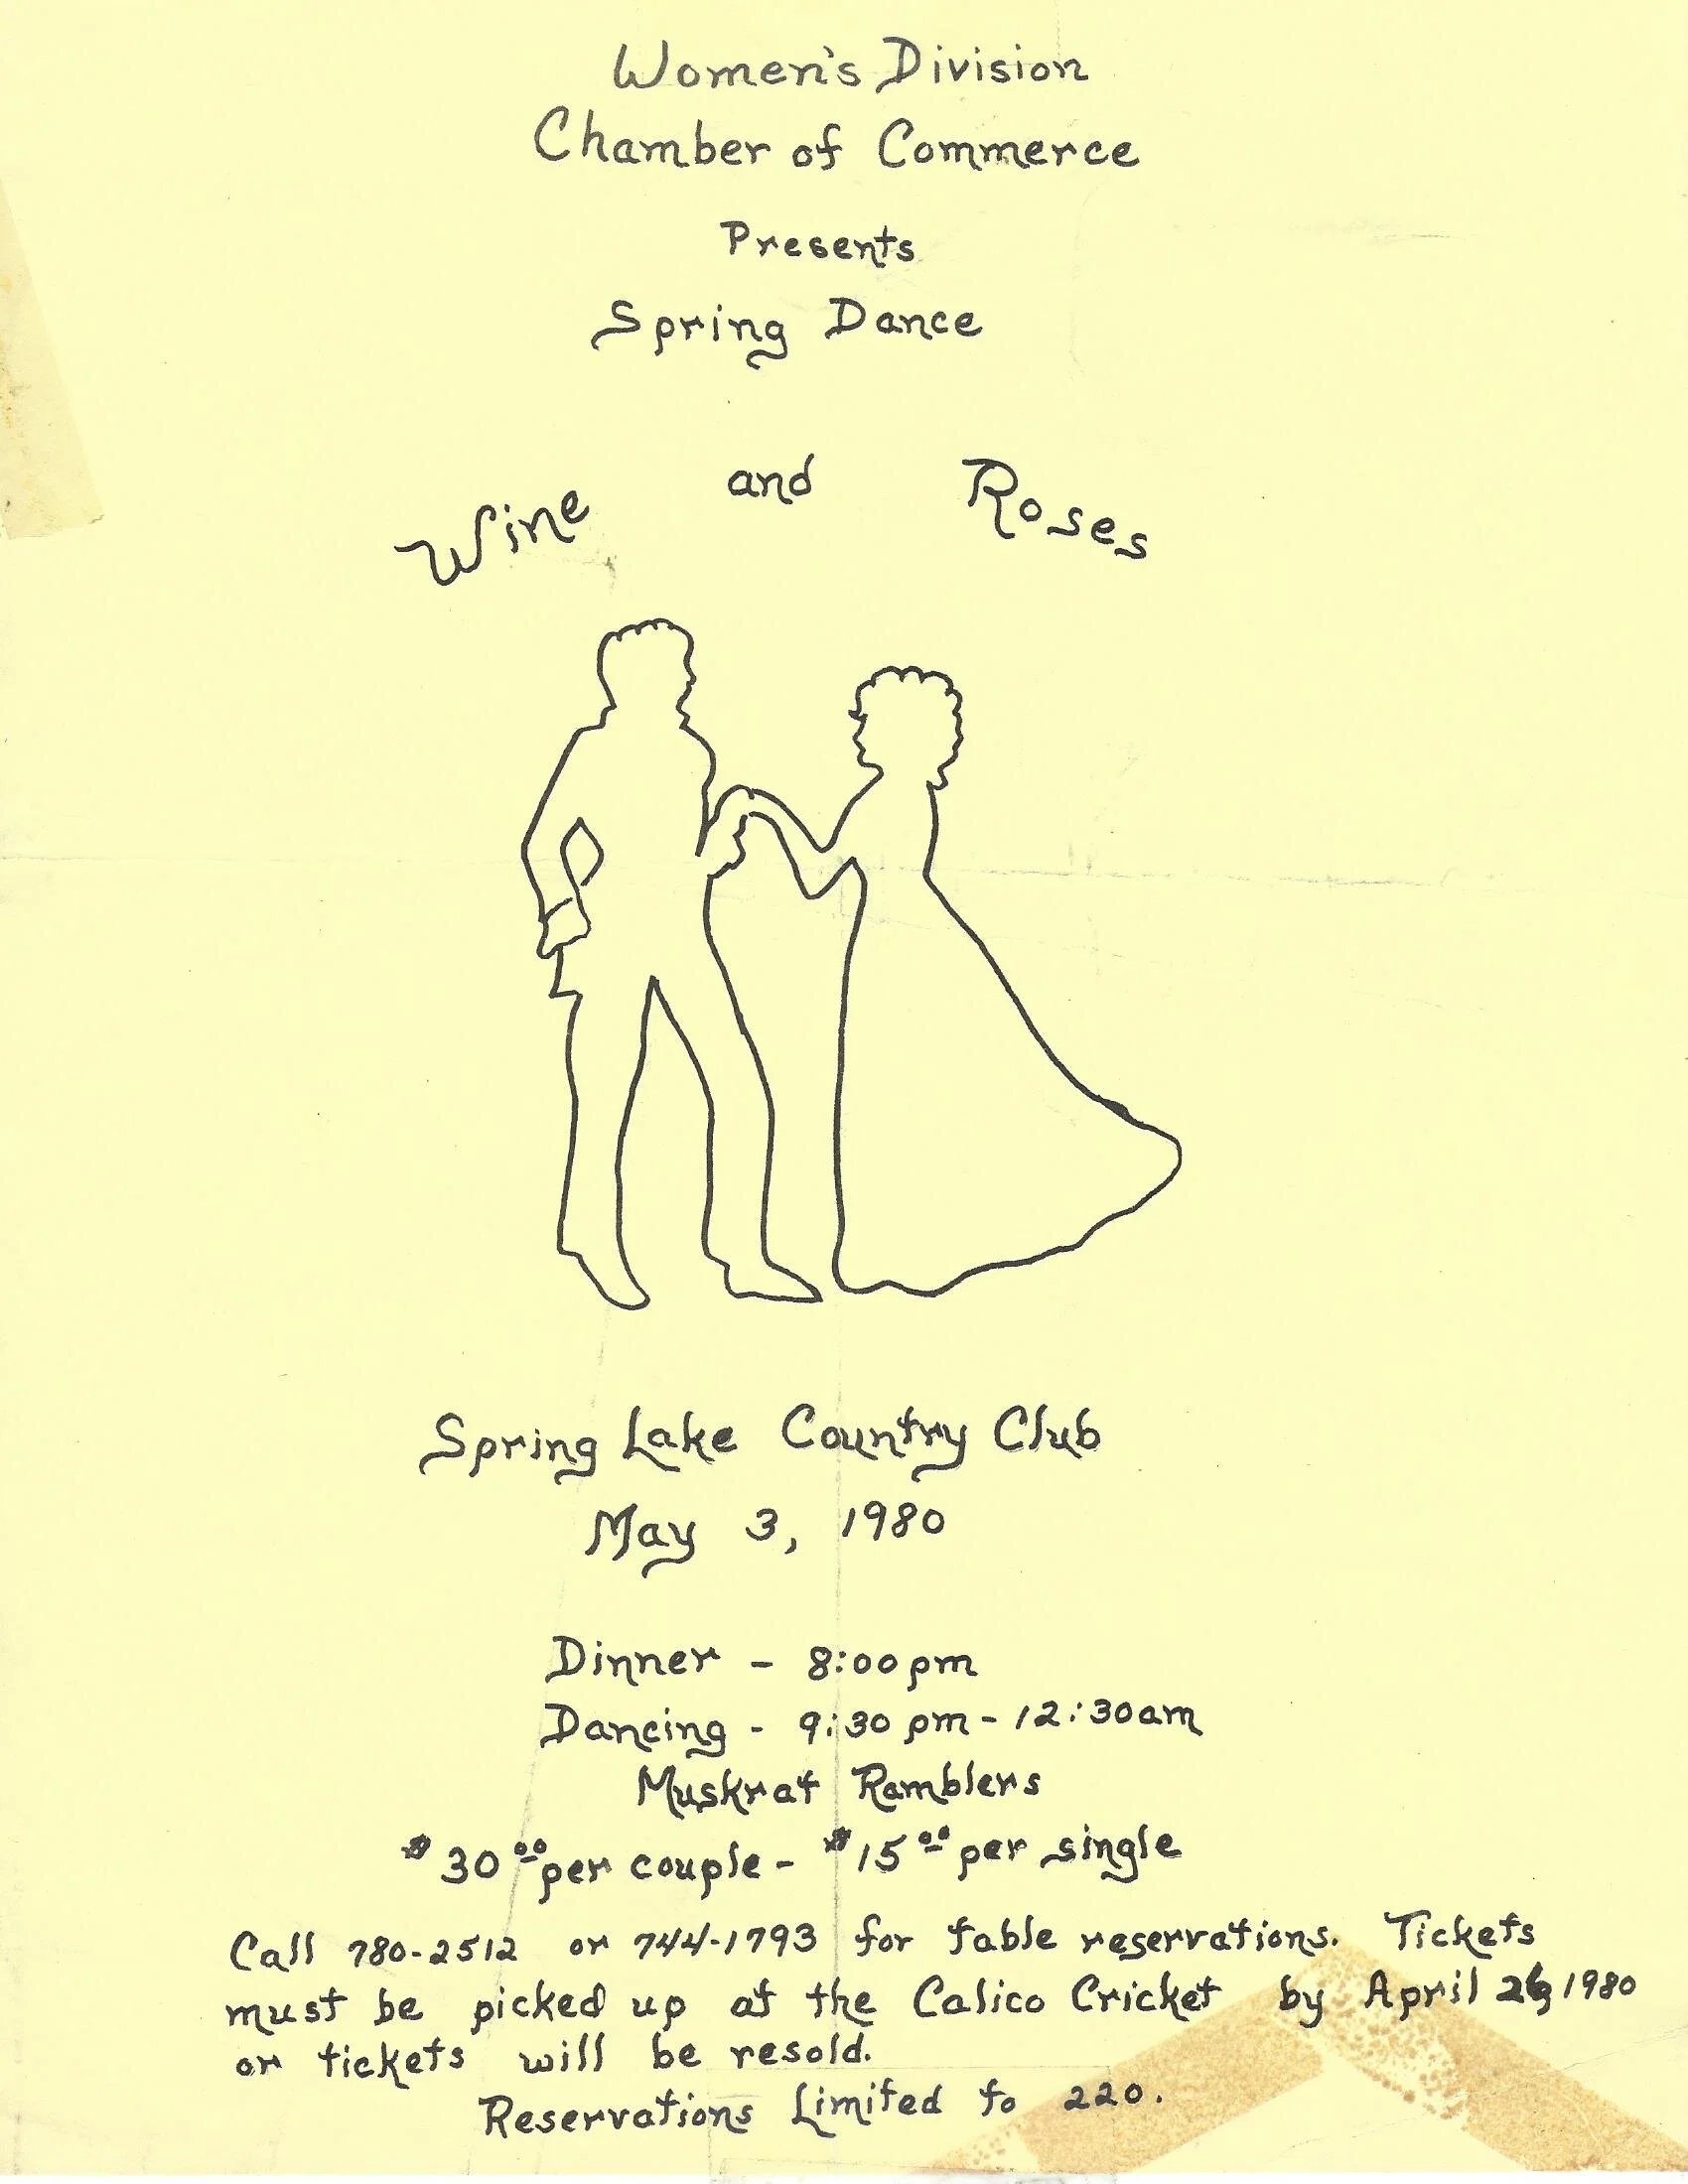 Women's Division
Chamber of Commerce
Presents
Spring Dance
Wine and Roses
Spring Lake Country Club
May 3, 1980
Dinner - 8:00 pm
Dancing - 9:30 pm - 12:30 am
Muskrat Ramblers
$30.00 per couple - $15.00 per single
Call 780-2512 or 744-1793 for table reservations. Tickets
must be picked up at the Calico Cricket by April 26, 1980
or tickets will be resold.
Reservations Limited to 220.